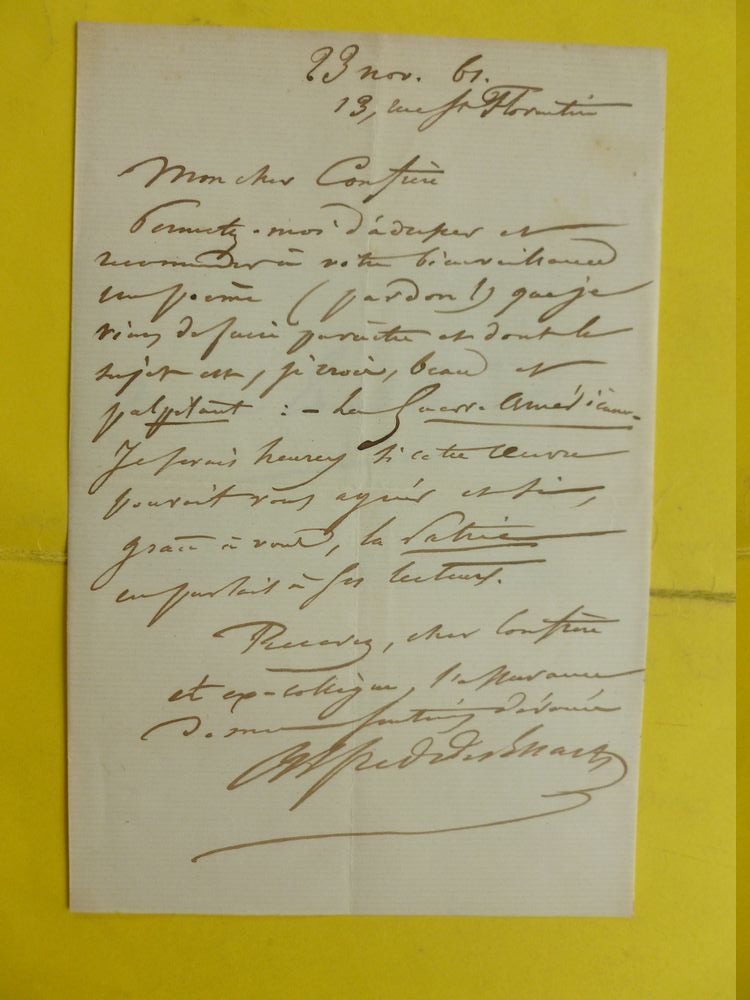 23 nov. 61.
13, rue St Florentin
Mon cher Confrère
Permetz-moi d'adresser et
recommander à votre bienveillance
un poème (pardon !) que je
viens de faire paraître et dont le
sujet est, je crois, beau et
palpitant : – La Guerre Américaine.
Je serais heureux si cette œuvre
pouvait vous agréer et si,
grâce à vous, la Patrie
en parlait à ses lecteurs.
Recevez, cher Confrère
et ex-collègue, l'assurance
de mes sentiments dévoués
Alfred des Essarts